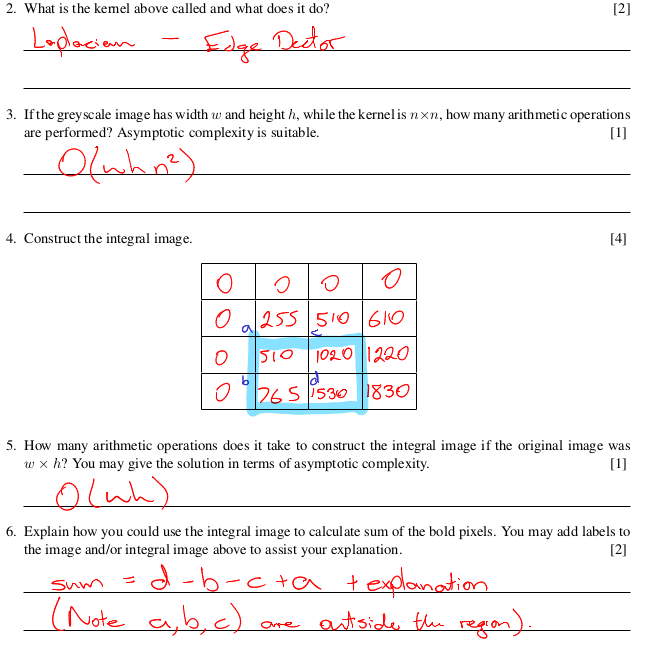 2. What is the kernel above called and what does it do? [2]
Laplacian — Edge Dector
3. If the greyscale image has width w and height h, while the kernel is n×n, how many arithmetic operations
are performed? Asymptotic complexity is suitable. [1]
O(whn²)
4. Construct the integral image. [4]
0 0 0 0
0 255 510 610
a c
0 510 1020 1220
b d
0 765 1530 1830
5. How many arithmetic operations does it take to construct the integral image if the original image was
w × h? You may give the solution in terms of asymptotic complexity. [1]
O(wh)
6. Explain how you could use the integral image to calculate sum of the bold pixels. You may add labels to
the image and/or integral image above to assist your explanation. [2]
sum = d - b - c + a + explanation
(Note a, b, c) are outside the region).